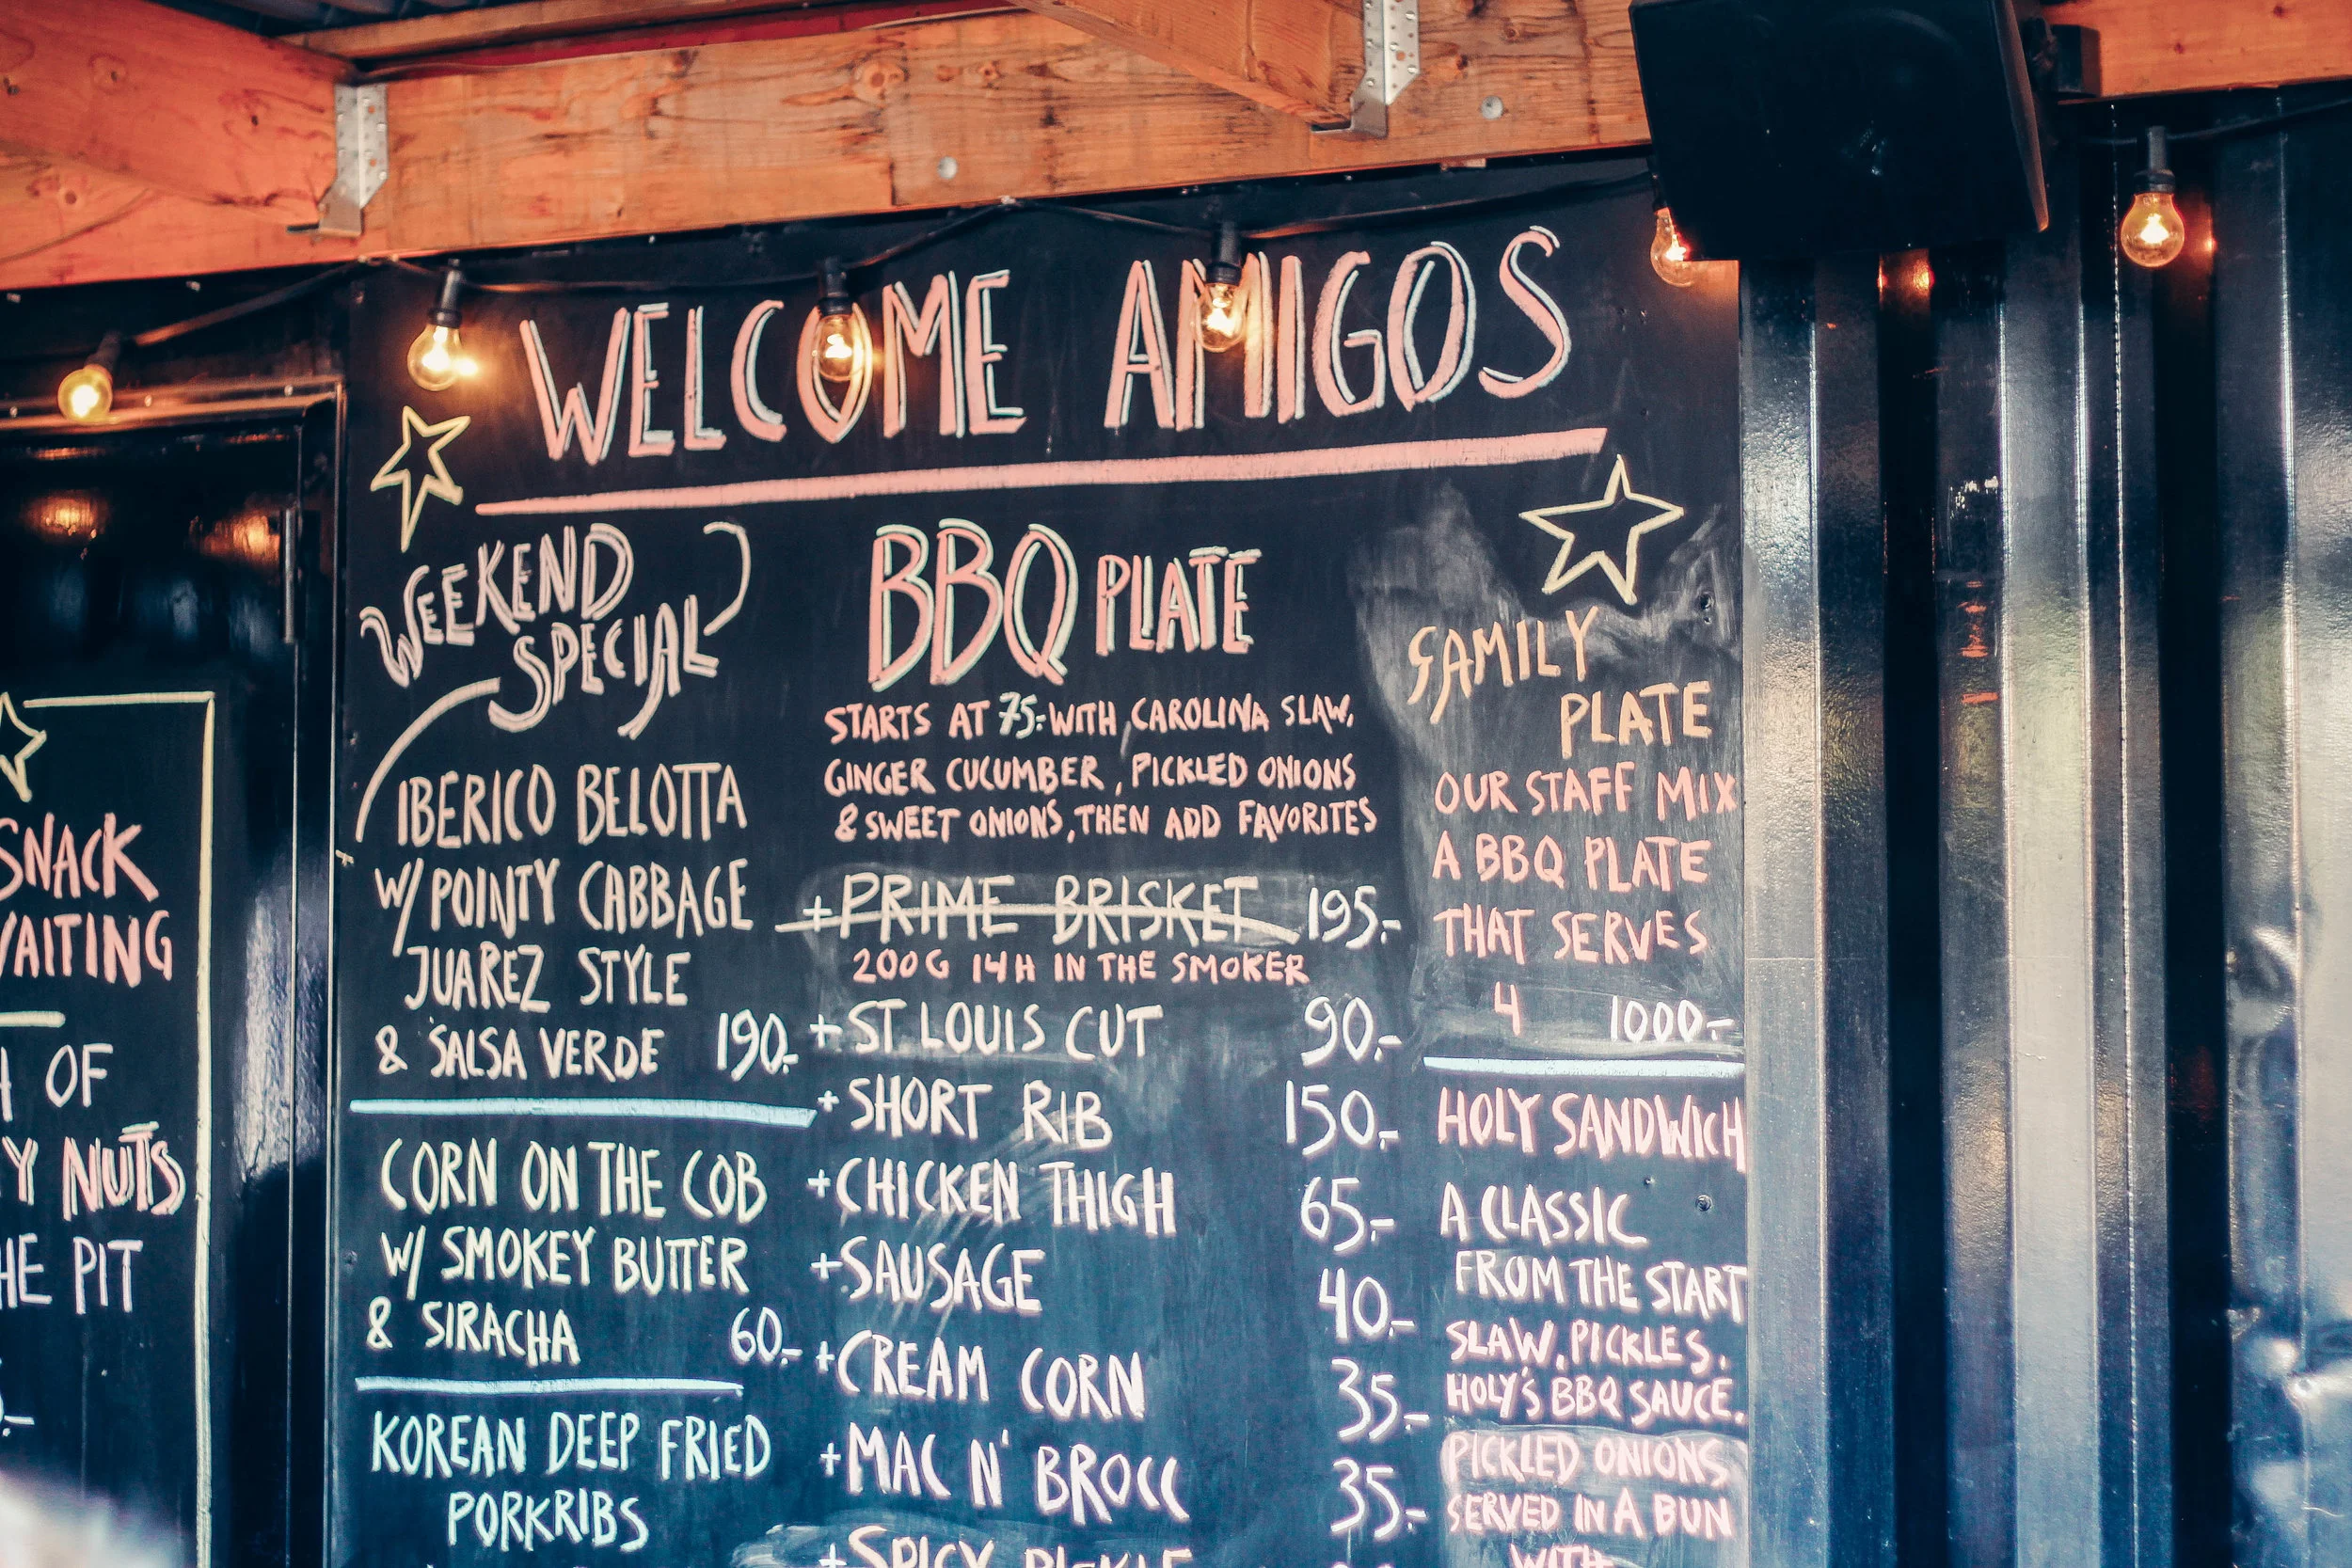 WELCOME AMIGOS
WEEKEND
SPECIAL
IBERICO BELOTTA
W/ POINTY CABBAGE
JUAREZ STYLE
& SALSA VERDE 190.-
CORN ON THE COB
W/ SMOKEY BUTTER
& SIRACHA 60.-
KOREAN DEEP FRIED
PORKRIBS
BBQ PLATE
STARTS AT 75.- WITH CAROLINA SLAW,
GINGER CUCUMBER, PICKLED ONIONS
& SWEET ONIONS, THEN ADD FAVORITES
+PRIME BRISKET 195.-
200G 14H IN THE SMOKER
+ST LOUIS CUT 90.-
+SHORT RIB 150.-
+CHICKEN THIGH 65.-
+SAUSAGE 40.-
+CREAM CORN 35.-
+MAC N' BROCC 35.-
+SPICY PICKLE
FAMILY
PLATE
OUR STAFF MIX
A BBQ PLATE
THAT SERVES
4 1000.-
HOLY SANDWICH
A CLASSIC
FROM THE START
SLAW, PICKLES,
HOLY'S BBQ SAUCE,
PICKLED ONIONS
SERVED IN A BUN
WITH
SNACK
OF
NUTS
PIT